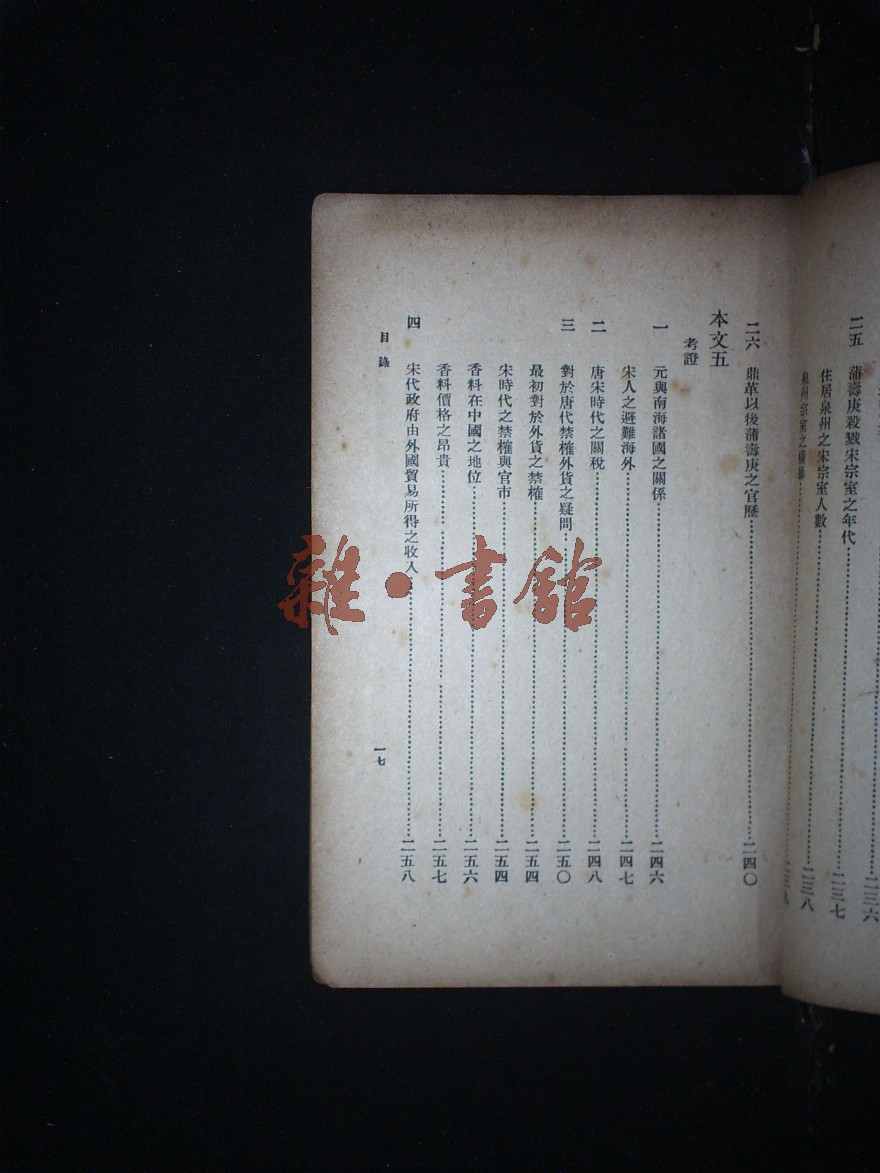 二五 蒲壽庚殺戮宋宗室之年代……二三六
住居泉州之宋宗室人數……二三七
泉州宗室之橫暴……二三八
二六 鼎革以後蒲壽庚之官歷……二四〇
本文五
考證
一 元與南海諸國之關係……二四六
宋人之避難海外……二四七
二 唐宋時代之關稅……二四八
三 對於唐代禁榷外貨之疑問……二五〇
最初對於外貨之禁榷……二五四
宋時代之禁榷與官市……二五四
香料在中國之地位……二五六
香料價格之昂貴……二五七
四 宋代政府由外國貿易所得之收入……二五八
目錄
一七
雜·書館